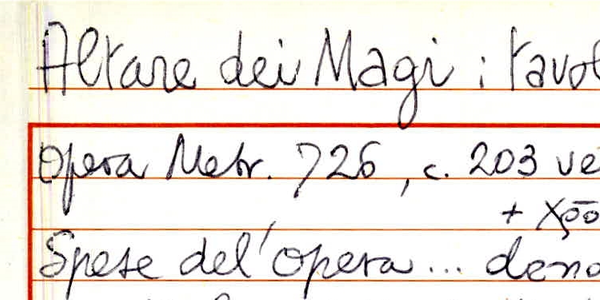 Altare dei Magi : tavol
Opera Metr. 726, c. 203 ve
+ X
Spese del'opera... deno